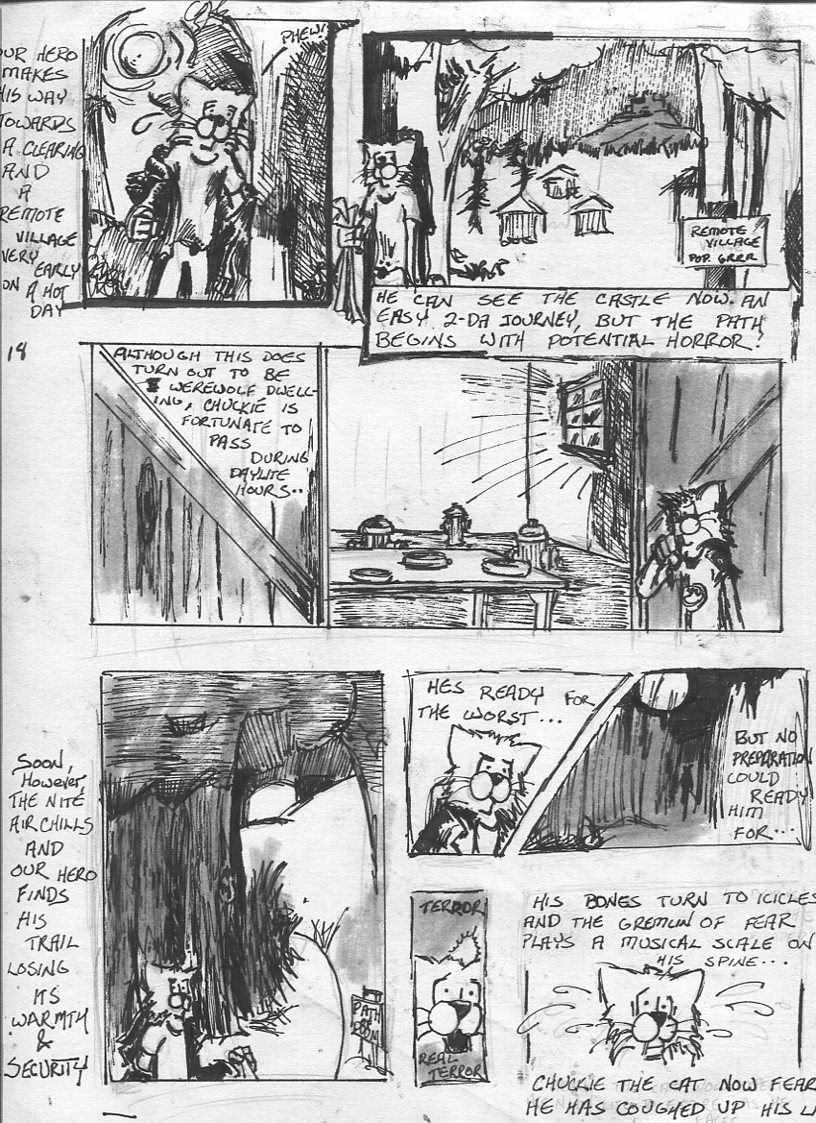 OUR HERO
MAKES
HIS WAY
TOWARDS
A CLEARING
AND
A
REMOTE
VILLAGE
VERY
EARLY
ON A HOT
DAY
PHEW!
REMOTE
VILLAGE
POP. GRRR
HE CAN SEE THE CASTLE NOW. AN
EASY 2-DA JOURNEY, BUT THE PATH
BEGINS WITH POTENTIAL HORROR!
18
ALTHOUGH THIS DOES
TURN OUT TO BE
WEREWOLF DWELL-
ING, CHUCKIE IS
FORTUNATE TO
PASS
DURING
DAYLITE
HOURS..
SOON,
HOWEVER,
THE NITE
AIR CHILLS
AND
OUR HERO
FINDS
HIS
TRAIL
LOSING
ITS
WARMTH
&
SECURITY
PATH
DOOM
HES READY FOR
THE WORST...
BUT NO
PREPARATION
COULD
READY
HIM
FOR...
TERROR
REAL
TERROR
HIS BONES TURN TO ICICLES
AND THE GREMLIN OF FEAR
PLAYS A MUSICAL SCALE ON
HIS SPINE...
CHUCKIE THE CAT NOW FEAR
HE HAS COUGHED UP HIS LA